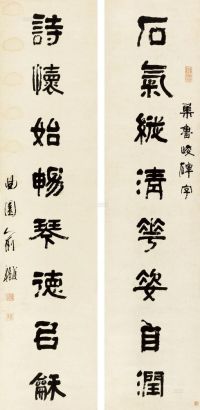 石氣縱清華姿自潤
集魯峻碑字
詩懷始暢琴德召龢
曲園俞樾